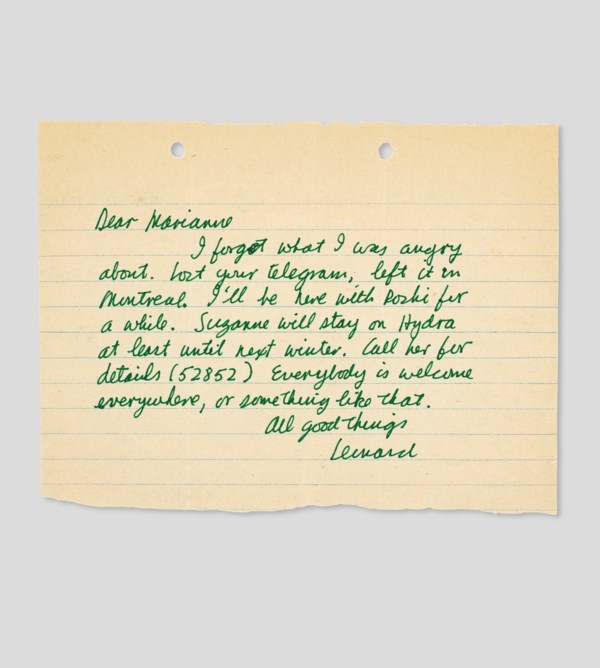 Dear Marianne
I forgot what I was angry
about. Lost your telegram, left it in
Montreal. I'll be here with Roshi for
a while. Suzanne will stay on Hydra
at least until next winter. Call her for
details (52852) Everybody is welcome
everywhere, or something like that.
All good things
Leonard